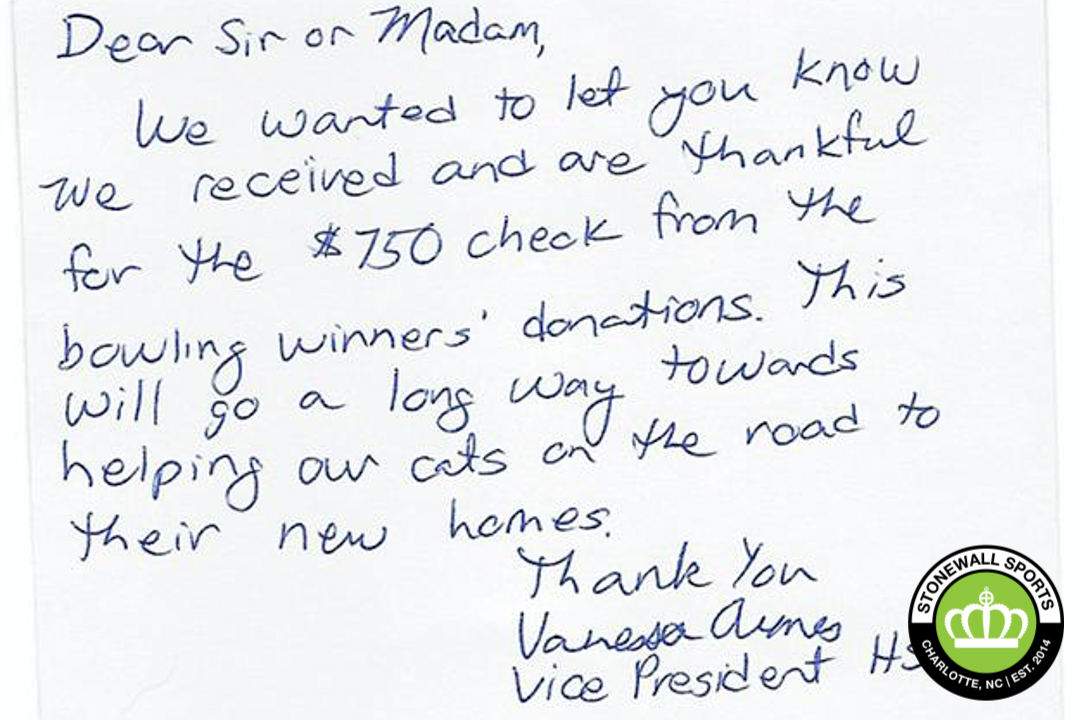 Dear Sir or Madam,
We wanted to let you know
we received and are thankful
for the $750 check from the
bowling winners' donations. This
will go a long way towards
helping our cats on the road to
their new homes.
Thank You
Vanessa
Vice President HS
STONEWALL SPORTS
CHARLOTTE, NC | EST. 2014